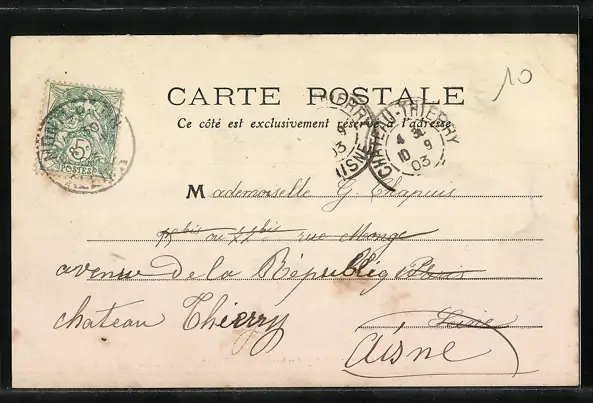 10
CARTE POSTALE
Ce côté est exclusivement réservé à l'adresse
5c
POSTES
THIERRY
9
03
AISNE
CHATEAU-THIERRY
4 E
10 9
03
Mademoiselle G. Chapuis
bis ou 77 bis rue Monge
avenue de la République Paris
chateau Thierry Seine
Aisne